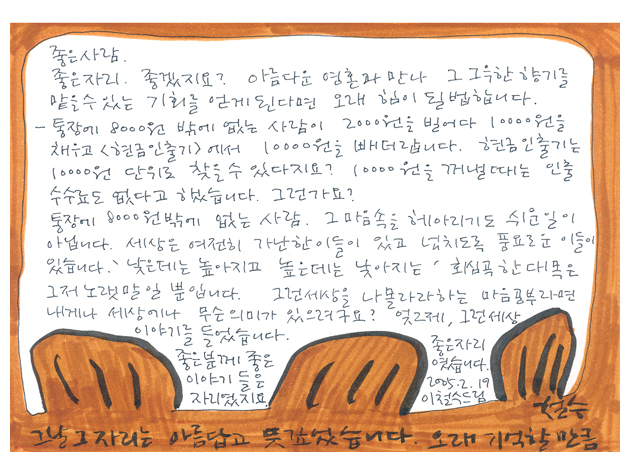 좋은사람.
좋은자리. 좋겠지요? 아름다운 영혼과 만나 그 그윽한 향기를
맡을 수 있는 기회를 얻게 된다면 오래 힘이 될 법합니다.
- 통장에 8000원 밖에 없는 사람이 2000원을 빌어다 10000원을
채우고 <현금인출기>에서 10000원을 빼더랍니다. 현금인출기는
10000원 단위로 찾을 수 있다지요? 10000원을 꺼낼 때는 인출
수수료도 없다고 했습니다. 그런가요?
통장에 8000원 밖에 없는 사람. 그 마음속을 헤아리기도 쉬운 일이
아닙니다. 세상은 여전히 가난한 이들이 있고 넘치도록 풍요로운 이들이
있습니다. '낮은데는 높아지고 높은데는 낮아지는' 회심곡 한 대목은
그저 노랫말일 뿐입니다. 그런 세상을 나몰라라하는 마음공부라면
내게나 세상에나 무슨 의미가 있으려구요? 엊그제, 그런 세상
이야기를 들었습니다.
좋은 분께 좋은
이야기 들은
자리였지요
좋은자리
였습니다.
2005.2.19
이철수드림
철수
그날 그 자리는 아름답고 뜻깊었습니다. 오래 기억할 만큼